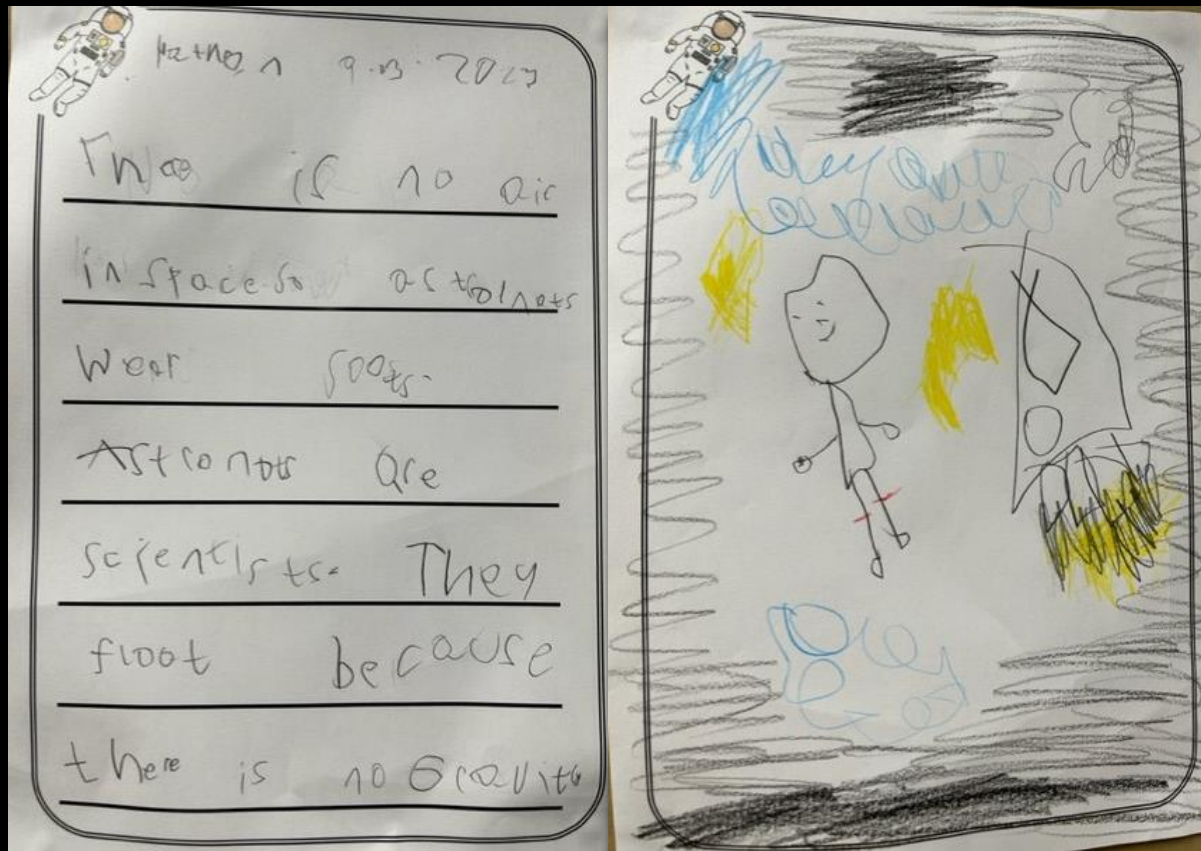 9.03.2023
Thee is no air
in space so astrolnots
wear soots.
Astronots are
scientists. They
floot because
there is no Gravite